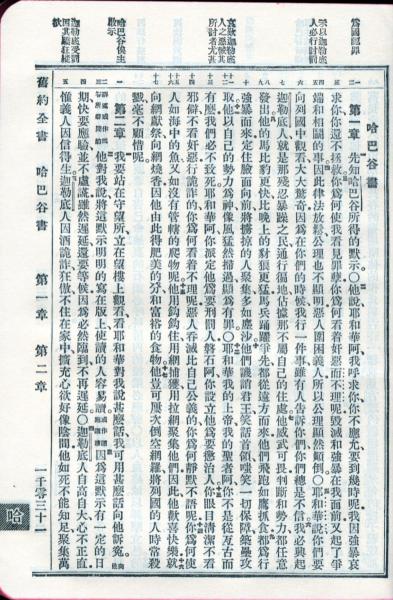 哈巴谷書
第一章 先知哈巴谷所得的默示○他說耶和華阿我呼求你你不應允要到幾時呢我因強暴哀
求你你還不拯救你為何使我看見罪孽你為何看着奸惡而不理呢毀滅和強暴在我面前又起了爭
端和相鬬的事因此律法放鬆公理也不顯明惡人圍困義人所以公理顯然顛倒○耶和華說你們要
向列國中觀看大大驚奇因為在你們的時候我行一件事雖有人告訴你們你們總是不信我必興起
迦勒底人就是那殘忍暴躁之民通行遍地佔據那不屬自己的住處他威武可畏判斷和勢力都任意
發出他的馬比豹更快比晚上的豺狼更猛馬兵踴躍爭先都從遠方而來他們飛跑如鷹抓食都為行
強暴而來定住臉面向前將擄掠的人聚集多如塵沙他們譏誚君王笑話首領嗤笑一切保障築壘攻
取他以自己的勢力為神像風猛然掃過顯為有罪○耶和華我的上帝我的聖者阿你不是從亙古而
有麼我們必不致死耶和華阿你派定他為要刑罰人磐石阿你設立他為要懲治人你眼目清潔不看
邪僻不看奸惡行詭詐的你為何看着不理呢惡人吞滅比自己公義的你為何靜默不語呢你為何使
人如海中的魚又如沒有管轄的爬物呢他用鈎鈎住用網捕獲用拉網聚集他們因此他歡喜快樂就
向網獻祭向網燒香因他由此得肥美的分和富裕的食物他豈可屢次倒空網羅將列國的人時常殺
戮毫不顧惜呢
第二章 我要站在守望所立在望樓上觀看看耶和華對我說甚麼話我可用甚麼話向他訴冤
他對我說將這默示明明的寫在版上使讀的人容易讀因為這默示有一定的日
期快要應驗並不虛謊雖然遲延還要等候因為必然臨到不再遲延○迦勒底人自高自大心不正直
惟義人因信得生迦勒底人因酒詭詐狂傲不住在家中擴充心欲好像陰間他如死不能知足聚集萬
舊約全書 哈巴谷書 第一章 第二章 一千零三十一
哈